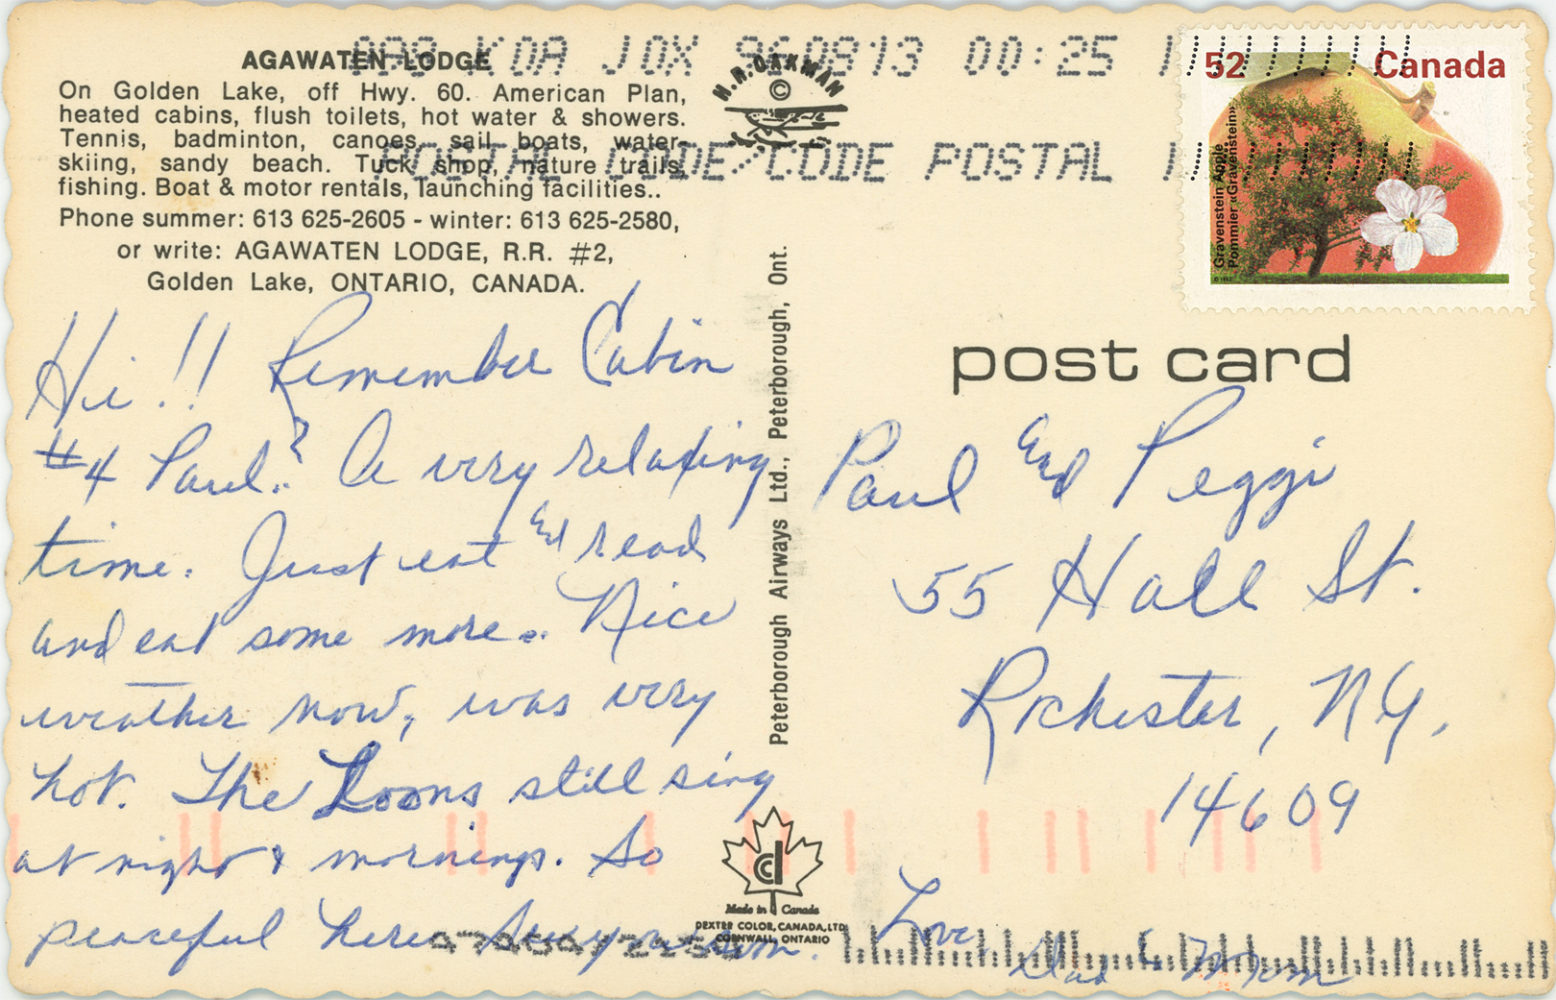 AGAWATEN LODGE
On Golden Lake, off Hwy. 60. American Plan,
heated cabins, flush toilets, hot water & showers.
Tennis, badminton, canoes, sail boats, water-
skiing, sandy beach. Tuck shop, nature trails,
fishing. Boat & motor rentals, launching facilities..
Phone summer: 613 625-2605 - winter: 613 625-2580,
or write: AGAWATEN LODGE, R.R. #2,
Golden Lake, ONTARIO, CANADA.
K0A J0X 960813 00:25
POSTAL CODE/CODE POSTAL
H.R. OAKMAN
©
52 Canada
Gravenstein Apple
Pommier «Gravenstein»
Hi!! Remember Cabin
#4 Paul? A very relaxing
time. Just eat and read
and eat some more.. Nice
weather now, was very
hot. The Loons still sing
at night & mornings. So
peaceful here
Peterborough Airways Ltd., Peterborough, Ont.
post card
Paul and Peggi
55 Hall St.
Rochester, NY.
14609
Love
Dad & Mom
cd
Made in Canada
DEXTER COLOR, CANADA, LTD
CORNWALL, ONTARIO